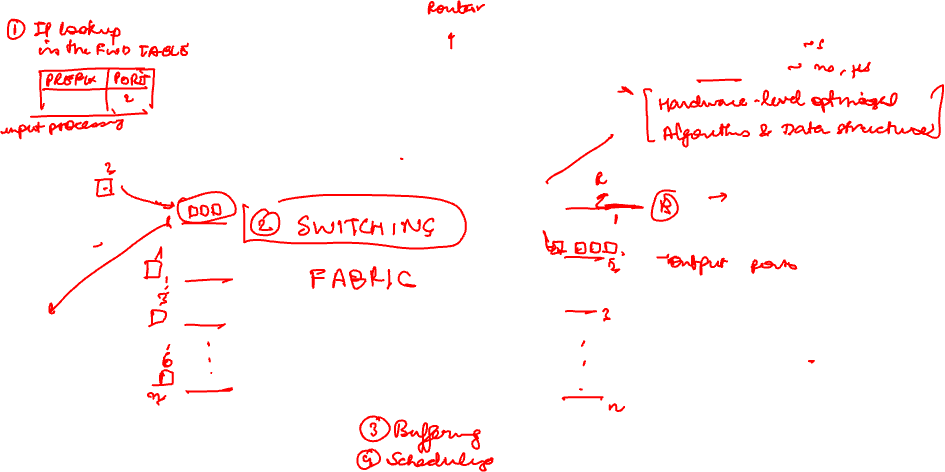 Router
① IP lookup
in the FWD TABLE
PREFIX PORT
2
input processing
~s
~ no, yes
Hardware-level optimized
Algorithms & Data structures
2
② SWITCHING
FABRIC
R
1
B
1
2
output ports
3
3
6
n
n
③ Buffering
④ Scheduling